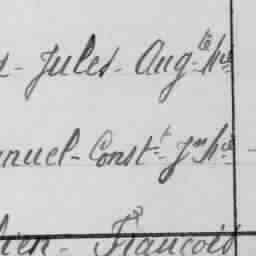 - Jules - Augte
nuel - Constt - Jn
lien - François